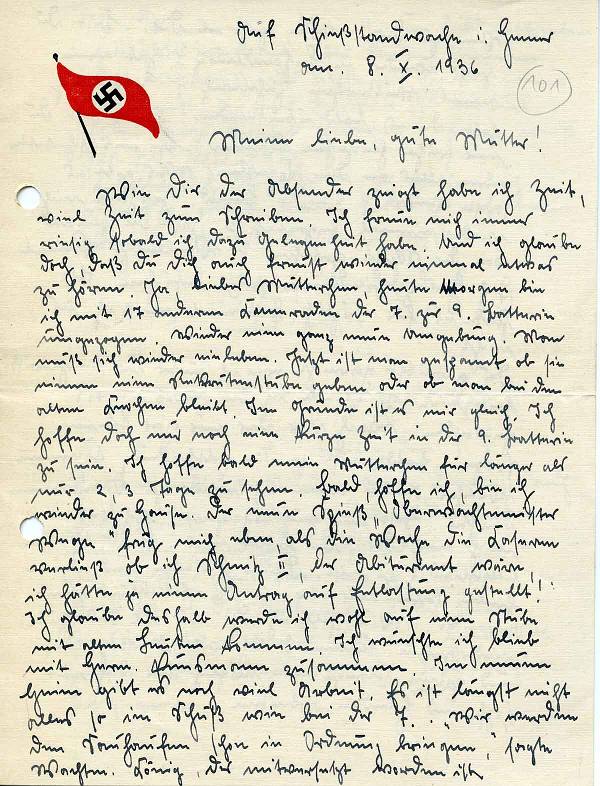 Auf Schießstandwache i. Hmer
am. 8. X. 1936
101
Meine liebe, gute Mutter!
Wie Dir der Absender zeigt habe ich Zeit,
viel Zeit zum Schreiben. Ich freue mich immer
riesig sobald ich dazu Gelegenheit habe. Und ich glaube
doch, daß Du Dich auch freust wieder einmal etwas
zu hören. Ja, liebes Mutterchen, heute Morgen bin
ich mit 17 anderen Kameraden der 7. zur 9. Batterie
umgezogen. Wieder eine ganz neue Umgebung. Man
muß sich wieder einleben. Jetzt ist man gespannt ob sie
einem eine Rekrutenstube geben oder ob man bei den
alten Knochen bleibt. Im Grunde ist es mir gleich. Ich
hoffe doch nur noch eine kurze Zeit in der 9. Batterie
zu sein. Ich hoffe bald mein Mutterchen für länger als
nur 2, 3 Tage zu sehen. Bald, hoffe ich, bin ich
wieder zu Hause. Der neue Spieß „Oberwachtmeister
Wege" frug mich eben, als die Wache die Kaserne
verließ ob ich Schmitz II, der Abiturient wäre,
ich hätte ja einen Antrag auf Entlassung gestellt!
Ich glaube deshalb werde ich wohl auf eine Stube
mit alten Leuten kommen. Ich wünschte ich bliebe
mit Herm. Hausmann zusammen. Im neuen
Heim gibt es noch viel Arbeit. Es ist längst nicht
alles so im Schuß wie bei der 7. „Wir werden
den Sauhaufen schon in Ordnung bringen," sagte
Wachtm. König, der mitversetzt worden ist.